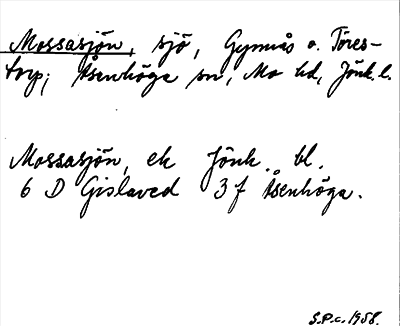 Mossasjön, sjö, Gynnås o. Töres-
torp; Åsenhöga sn, Mo hd, Jönk. l.
Mossasjön, ek Jönk. bl.
6 D Gislaved 3 f Åsenhöga.
S.P.c. 1958.